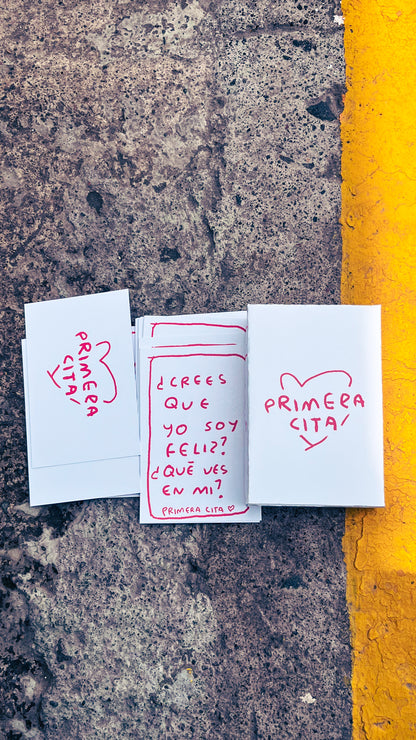 PRIMERA
CITA/
¿CREES
QUE
YO SOY
FELIZ?
¿QUÉ VES
EN MI?
PRIMERA CITA ♡
PRIMERA
CITA/